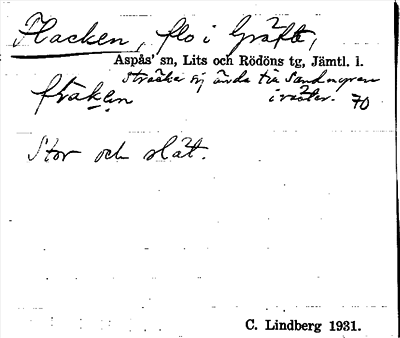 Flacken, flo i Gräfte,
Aspås' sn, Lits och Rödöns tg, Jämtl. l.
sträcker sig ända till Sandmyren
flakan i väster. 70
Stor och slät.
C. Lindberg 1931.